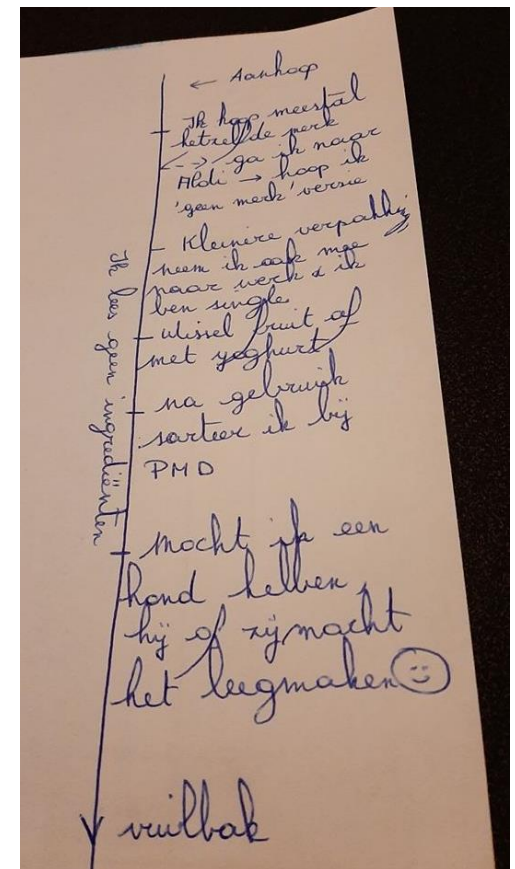 ← Aankoop
Ik koop meestal
hetzelfde merk
<--> ga ik naar
Aldi → koop ik
'geen merk' versie
Kleinere verpakking
neem ik ook mee
naar werk & ik
ben single
wissel fruit af
met yoghurt
na gebruik
sorteer ik bij
PMD
Mocht ik een
hond hebben,
hij of zij mocht
het leegmaken ☺
vuilbak
Ik lees geen ingrediënten